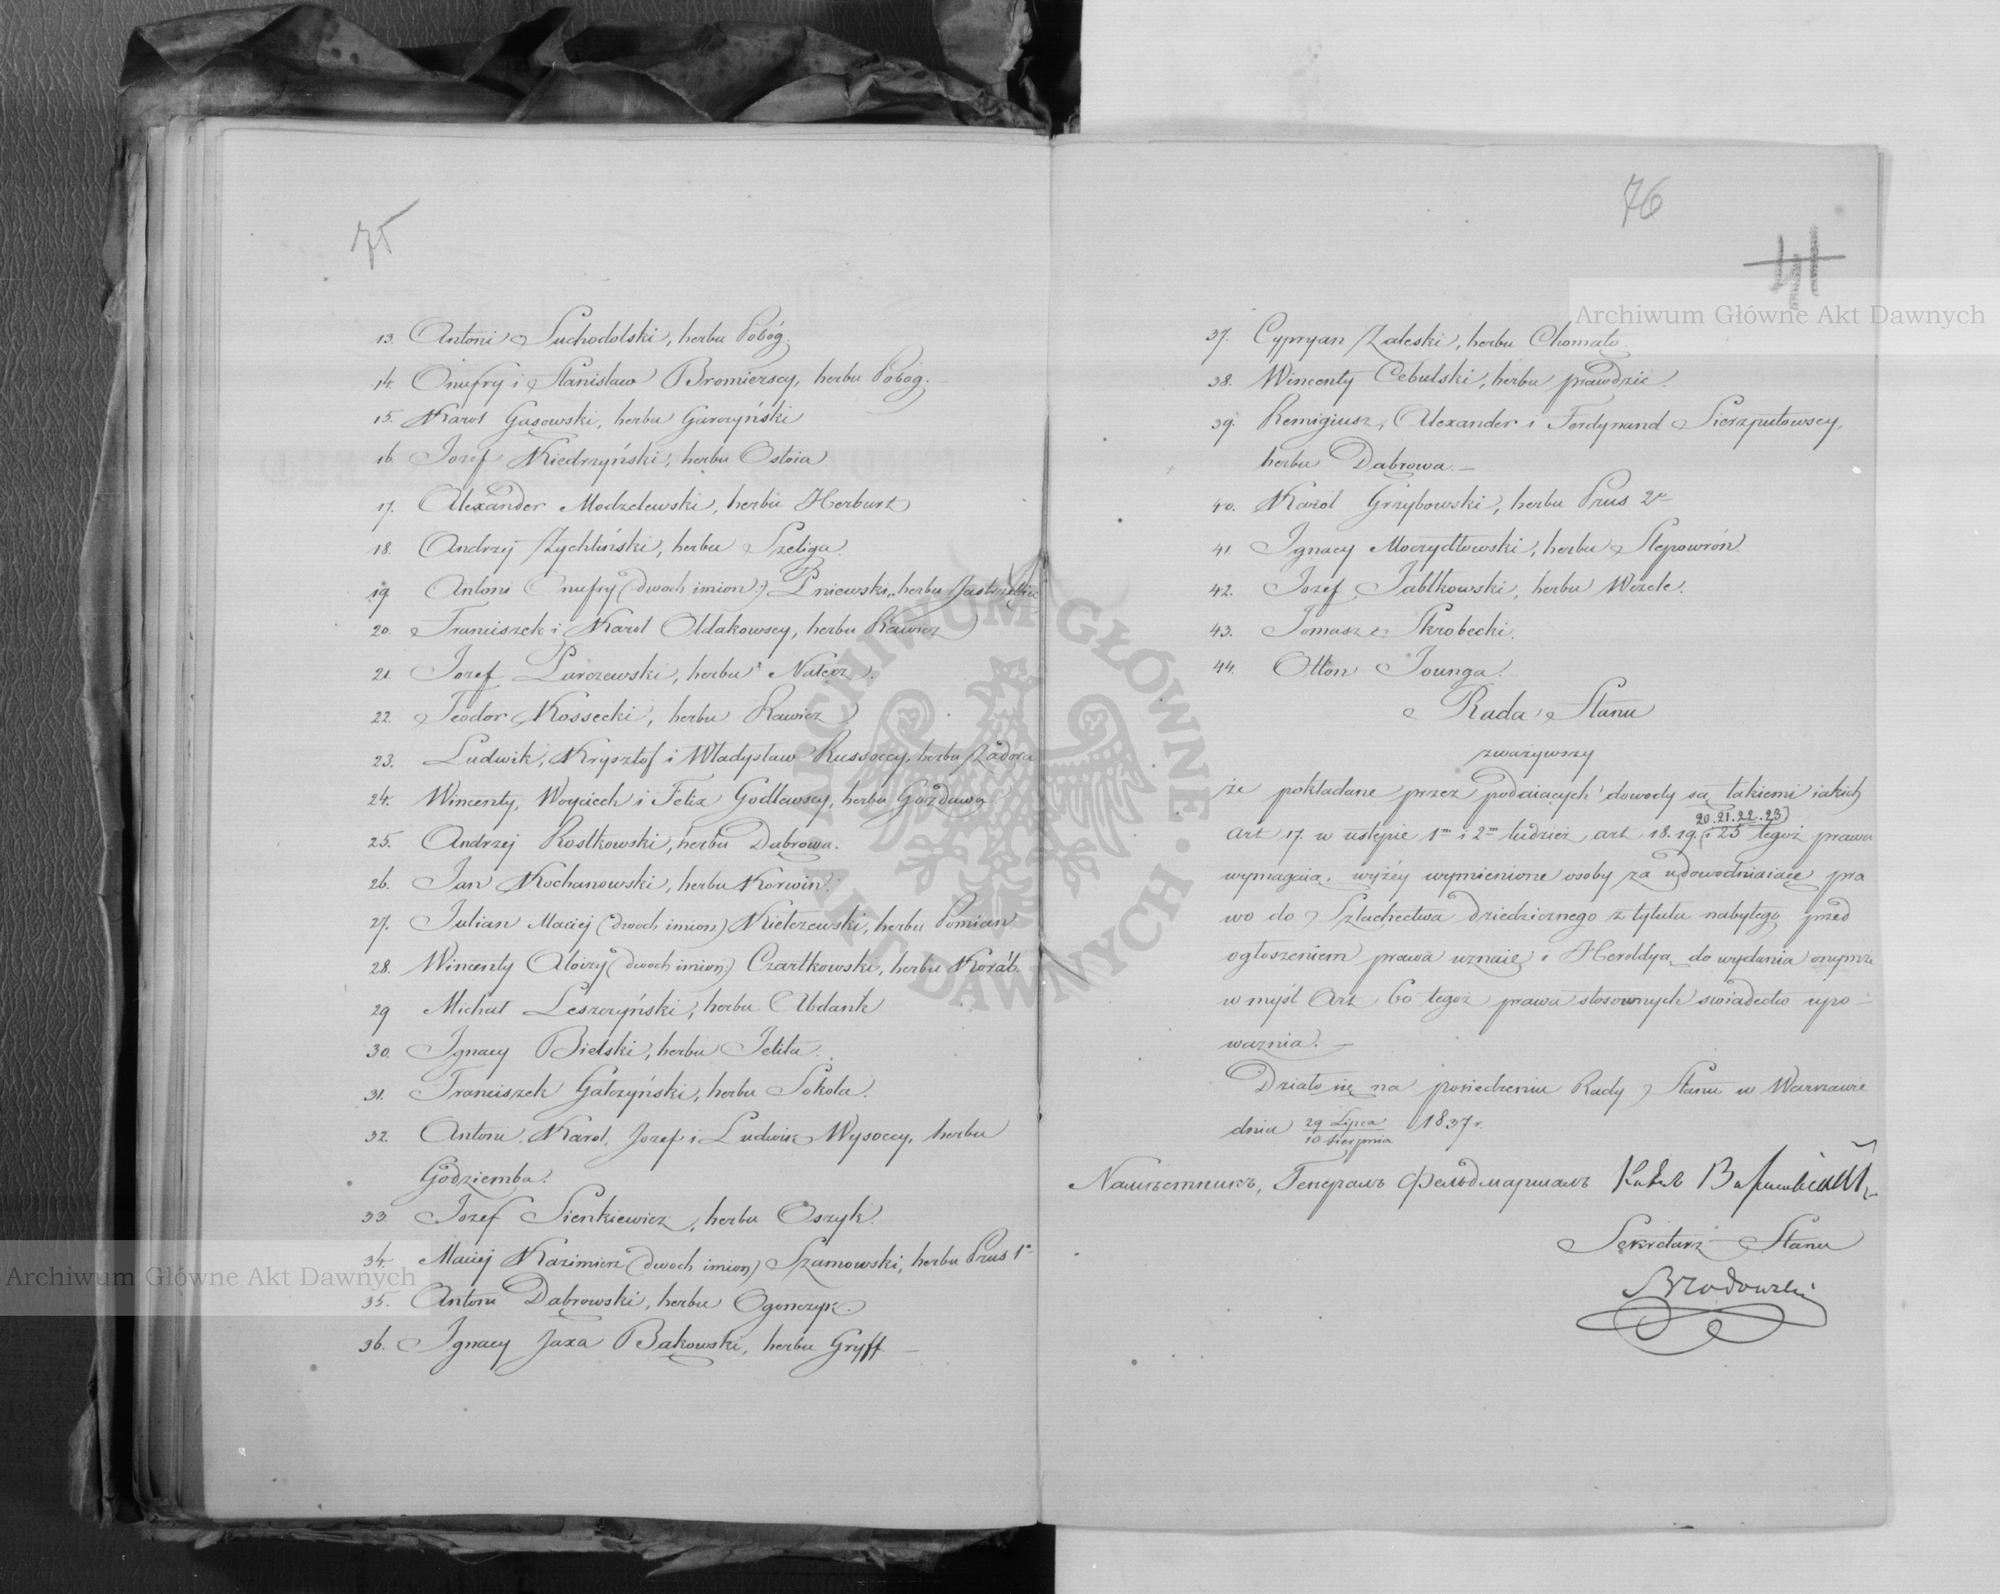 75
13. Antoni Suchodolski, herbu Pobóg.
14. Onufry i Stanisław Bromierscy, herbu Pobog.
15. Karol Gąsowski, herbu Garczyński
16. Jozef Kiedrzyński, herbu Ostoia
17. Alexander Modzelewski, herbu Herburt
18. Andrzej Zychliński, herbu Szeliga.
19 Antoni Onufry (dwoch imion) Pniewski, herbu Jastrzębiec
20. Franciszek i Karol Oldakowscy, herbu Rawicz
21. Jozef Parczewski, herbu Nałęcz.
22. Teodor Kossecki, herbu Rawicz
23. Ludwik, Krysztof i Władysław Russoccy, herbu Zadora
24. Wincenty, Woyciech i Felix Godlewscy, herbu Gozdawa
25. Andrzej Rostkowski, herbu Dąbrowa.
26. Jan Kochanowski, herbu Korwin.
27. Julian Maciej (dwoch imion) Kiełczewski, herbu Pomian
28. Wincenty Aloizy (dwoch imion) Czartkowski, herbu Koráb.
29 Michał Leszczyński, herbu Abdank
30. Ignacy Bielski, herbu Jelita.
31. Franciszek Gałczyński, herbu Sokola.
32. Antoni, Karol, Jozef i Ludwik Wysoccy, herbu
Godziemba.
33. Jozef Sienkiewicz, herbu Oszyk.
34. Maciej Kazimierz (dwoch imion) Szamowski, herbu Prus 1º
35. Antoni Dąbrowski, herbu Ogonczyk.
36. Ignacy Jaxa Bąkowski, herbu Gryff
76
37. Cypryan Zaleski, herbu Chomąto.
38. Wincenty Cebulski, herbu prawdzic.
39. Remigiusz, Alexander i Ferdynand Sierzputowscy,
herbu Dąbrowa.
40. Karól Grzybowski, herbu Prus 2º
41. Ignacy Moczydłowski, herbu Slepowrón.
42. Jozef Jabłkowski, herbu Wczele.
43. Tomasz Skrobecki.
44. Otton Jounga.
Rada Stanu
zważywszy
że pokładane przez podaiących dowody są takiemi iakich
20. 21. 22. 23
art 17. w ustępie 1m i 2m tudzież art 18. 19. i 25 tegoż prawa
wymagaią, wyżéy wymienione osoby za udowodniaiące pra
wo do Szlachectwa dziedzicznego z tytułu nabytego przed
ogłoszeniem prawa uznaie i Heroldyą do wydania onymże
w myśl Art 60 tegoż prawa stosownych swiadectw upo-
ważnia.
Działo się na posiedzeniu Rady Stanu w Warszawie
dnia 29 Lipca / 10 Sierpnia 1837 r.
Намѣстникъ, Генералъ Фельдмаршалъ
Sekretarz Stanu
Brodowski
Archiwum Główne Akt Dawnych
Archiwum Główne Akt Dawnych
ARCHIWUM GŁÓWNE AKT DAWNYCH